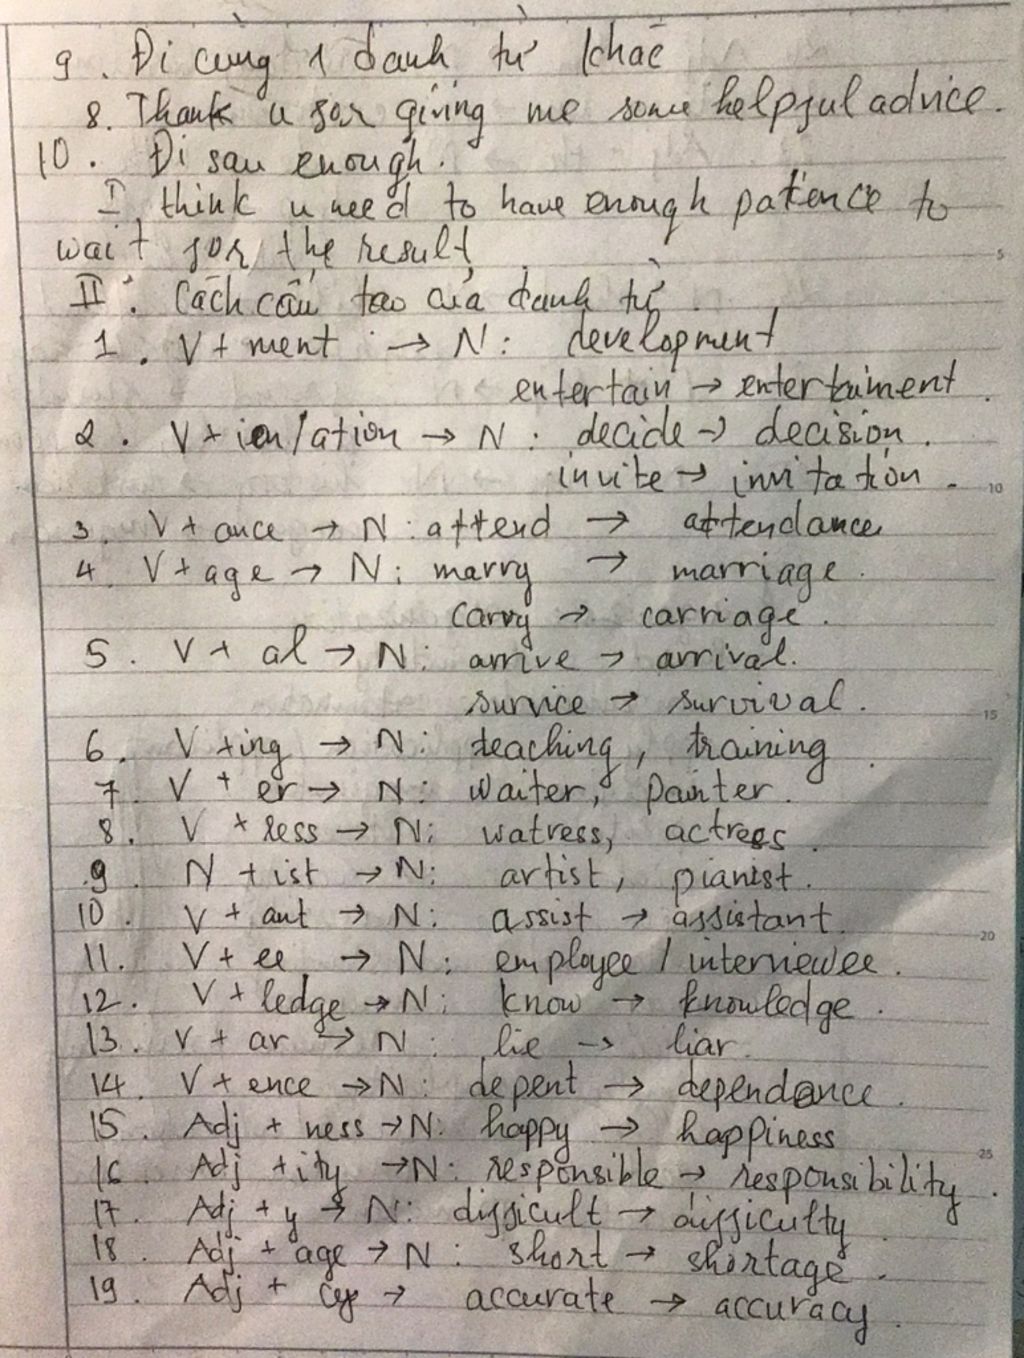 9. Đi cùng 1 danh từ khác
8. Thank u for giving me some helpful advice.
10. Đi sau enough.
I think u need to have enough patience to
wait for the result
II. Cách cấu tạo của danh từ
1. V + ment → N: development
entertain → entertaiment.
2. V + ion/ation → N: decide → decision.
invite → invitation.
3. V + ance → N: attend → attendance
4. V + age → N: marry → marriage.
carry → carriage.
5. V + al → N: arrive → arrival.
survice → survival.
6. V + ing → N: teaching, training.
7. V + er → N: waiter, painter.
8. V + ress → N: watress, actress.
9. N + ist → N: artist, pianist.
10. V + ant → N: assist → assistant.
11. V + ee → N: employee / interviewee.
12. V + ledge → N: know → knowledge.
13. V + ar → N: lie → liar.
14. V + ence → N: depent → dependence.
15. Adj + ness → N: happy → happiness
16. Adj + ity → N: responsible → responsibility.
17. Adj + y → N: difficult → difficulty.
18. Adj + age → N: short → shortage.
19. Adj + cy → accurate → accuracy.
5
10
15
20
25